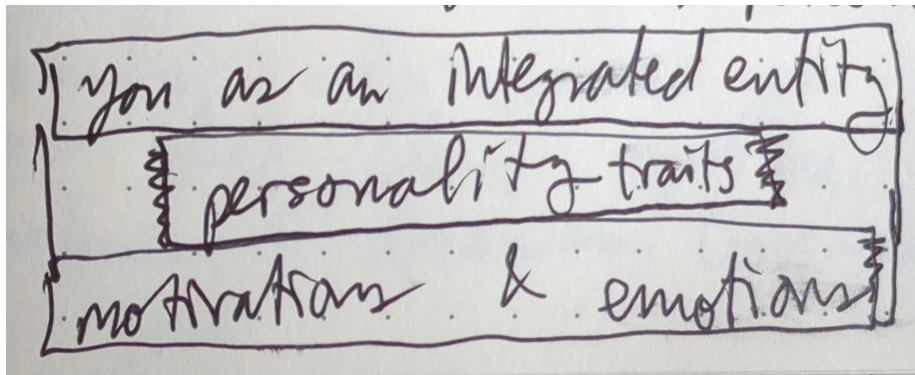 you as an integrated entity
personality traits
motivations & emotions